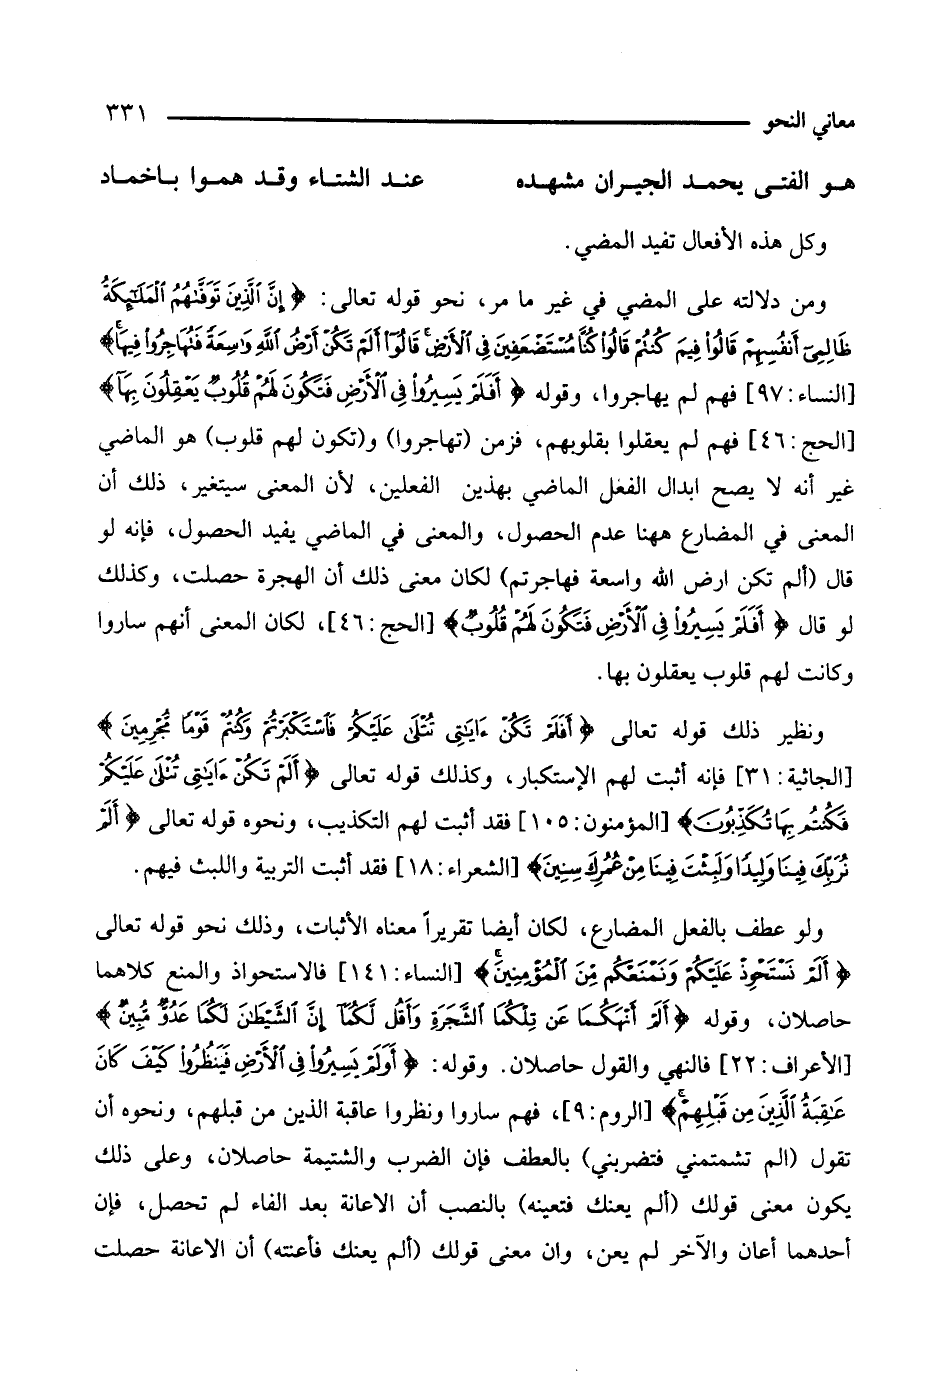 معاني النحو ٣٣١
هو الفتى يحمد الجيران مشهده عند الشتاء وقد هموا باخماد
وكل هذه الأفعال تفيد المضي.
ومن دلالته على المضي في غير ما مر، نحو قوله تعالى: ﴿ إِنَّ ٱلَّذِينَ تَوَفَّىٰهُمُ ٱلْمَلَٰٓئِكَةُ
ظَالِمِىٓ أَنفُسِهِمْ قَالُوا۟ فِيمَ كُنتُمْ قَالُوا۟ كُنَّا مُسْتَضْعَفِينَ فِى ٱلْأَرْضِ ۚ قَالُوٓا۟ أَلَمْ تَكُنْ أَرْضُ ٱللَّهِ وَٰسِعَةً فَتُهَاجِرُوا۟ فِيهَا ۚ﴾
[النساء: ٩٧] فهم لم يهاجروا، وقوله ﴿ أَفَلَمْ يَسِيرُوا۟ فِى ٱلْأَرْضِ فَتَكُونَ لَهُمْ قُلُوبٌ يَعْقِلُونَ بِهَآ﴾
[الحج: ٤٦] فهم لم يعقلوا بقلوبهم، فزمن (تهاجروا) و(تكون لهم قلوب) هو الماضي
غير أنه لا يصح ابدال الفعل الماضي بهذين الفعلين، لأن المعنى سيتغير، ذلك أن
المعنى في المضارع ههنا عدم الحصول، والمعنى في الماضي يفيد الحصول، فإنه لو
قال (ألم تكن ارض الله واسعة فهاجرتم) لكان معنى ذلك أن الهجرة حصلت، وكذلك
لو قال ﴿ أَفَلَمْ يَسِيرُوا۟ فِى ٱلْأَرْضِ فَتَكُونَ لَهُمْ قُلُوبٌ﴾ [الحج: ٤٦]، لكان المعنى أنهم ساروا
وكانت لهم قلوب يعقلون بها.
ونظير ذلك قوله تعالى ﴿ أَفَلَمْ تَكُنْ ءَايَٰتِى تُتْلَىٰ عَلَيْكُمْ فَٱسْتَكْبَرْتُمْ وَكُنتُمْ قَوْمًا مُّجْرِمِينَ ﴾
[الجاثية: ٣١] فإنه أثبت لهم الإستكبار، وكذلك قوله تعالى ﴿ أَلَمْ تَكُنْ ءَايَٰتِى تُتْلَىٰ عَلَيْكُمْ
فَكُنتُم بِهَا تُكَذِّبُونَ﴾ [المؤمنون: ١٠٥] فقد أثبت لهم التكذيب، ونحوه قوله تعالى ﴿ أَلَمْ
نُرَبِّكَ فِينَا وَلِيدًا وَلَبِثْتَ فِينَا مِنْ عُمُرِكَ سِنِينَ﴾ [الشعراء: ١٨] فقد أثبت التربية واللبث فيهم.
ولو عطف بالفعل المضارع، لكان أيضا تقريراً معناه الأثبات، وذلك نحو قوله تعالى
﴿ أَلَمْ نَسْتَحْوِذْ عَلَيْكُمْ وَنَمْنَعْكُم مِّنَ ٱلْمُؤْمِنِينَ ۚ﴾ [النساء: ١٤١] فالاستحواذ والمنع كلاهما
حاصلان، وقوله ﴿ أَلَمْ أَنْهَكُمَا عَن تِلْكُمَا ٱلشَّجَرَةِ وَأَقُل لَّكُمَآ إِنَّ ٱلشَّيْطَٰنَ لَكُمَا عَدُوٌّ مُّبِينٌ ﴾
[الأعراف: ٢٢] فالنهي والقول حاصلان. وقوله: ﴿ أَوَلَمْ يَسِيرُوا۟ فِى ٱلْأَرْضِ فَيَنظُرُوا۟ كَيْفَ كَانَ
عَٰقِبَةُ ٱلَّذِينَ مِن قَبْلِهِمْ ۚ﴾ [الروم: ٩]، فهم ساروا ونظروا عاقبة الذين من قبلهم، ونحوه أن
تقول (الم تشمتمني فتضربني) بالعطف فإن الضرب والشتيمة حاصلان، وعلى ذلك
يكون معنى قولك (ألم يعنك فتعينه) بالنصب أن الاعانة بعد الفاء لم تحصل، فإن
أحدهما أعان والآخر لم يعن، وان معنى قولك (ألم يعنك فأعنته) أن الاعانة حصلت